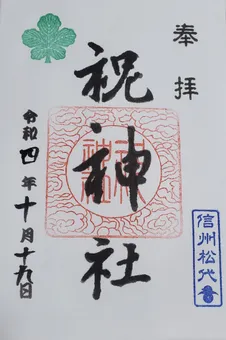 奉拝
祝神社
令和四年十月十九日
信州松代